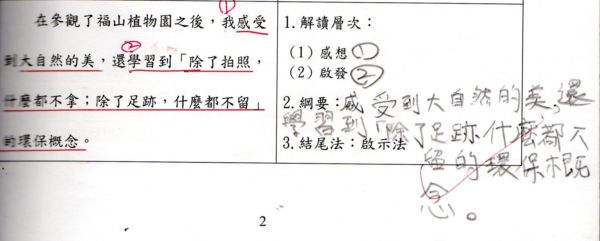 ①
在參觀了福山植物園之後，我感受
②
到大自然的美，還學習到「除了拍照，
什麼都不拿；除了足跡，什麼都不留」
的環保概念。
1.解讀層次：
(1)感想①
(2)啟發②
2.綱要：感受到大自然的美，還
學習到「除了足跡什麼都不
留的環保概
念。
3.結尾法：啟示法
2